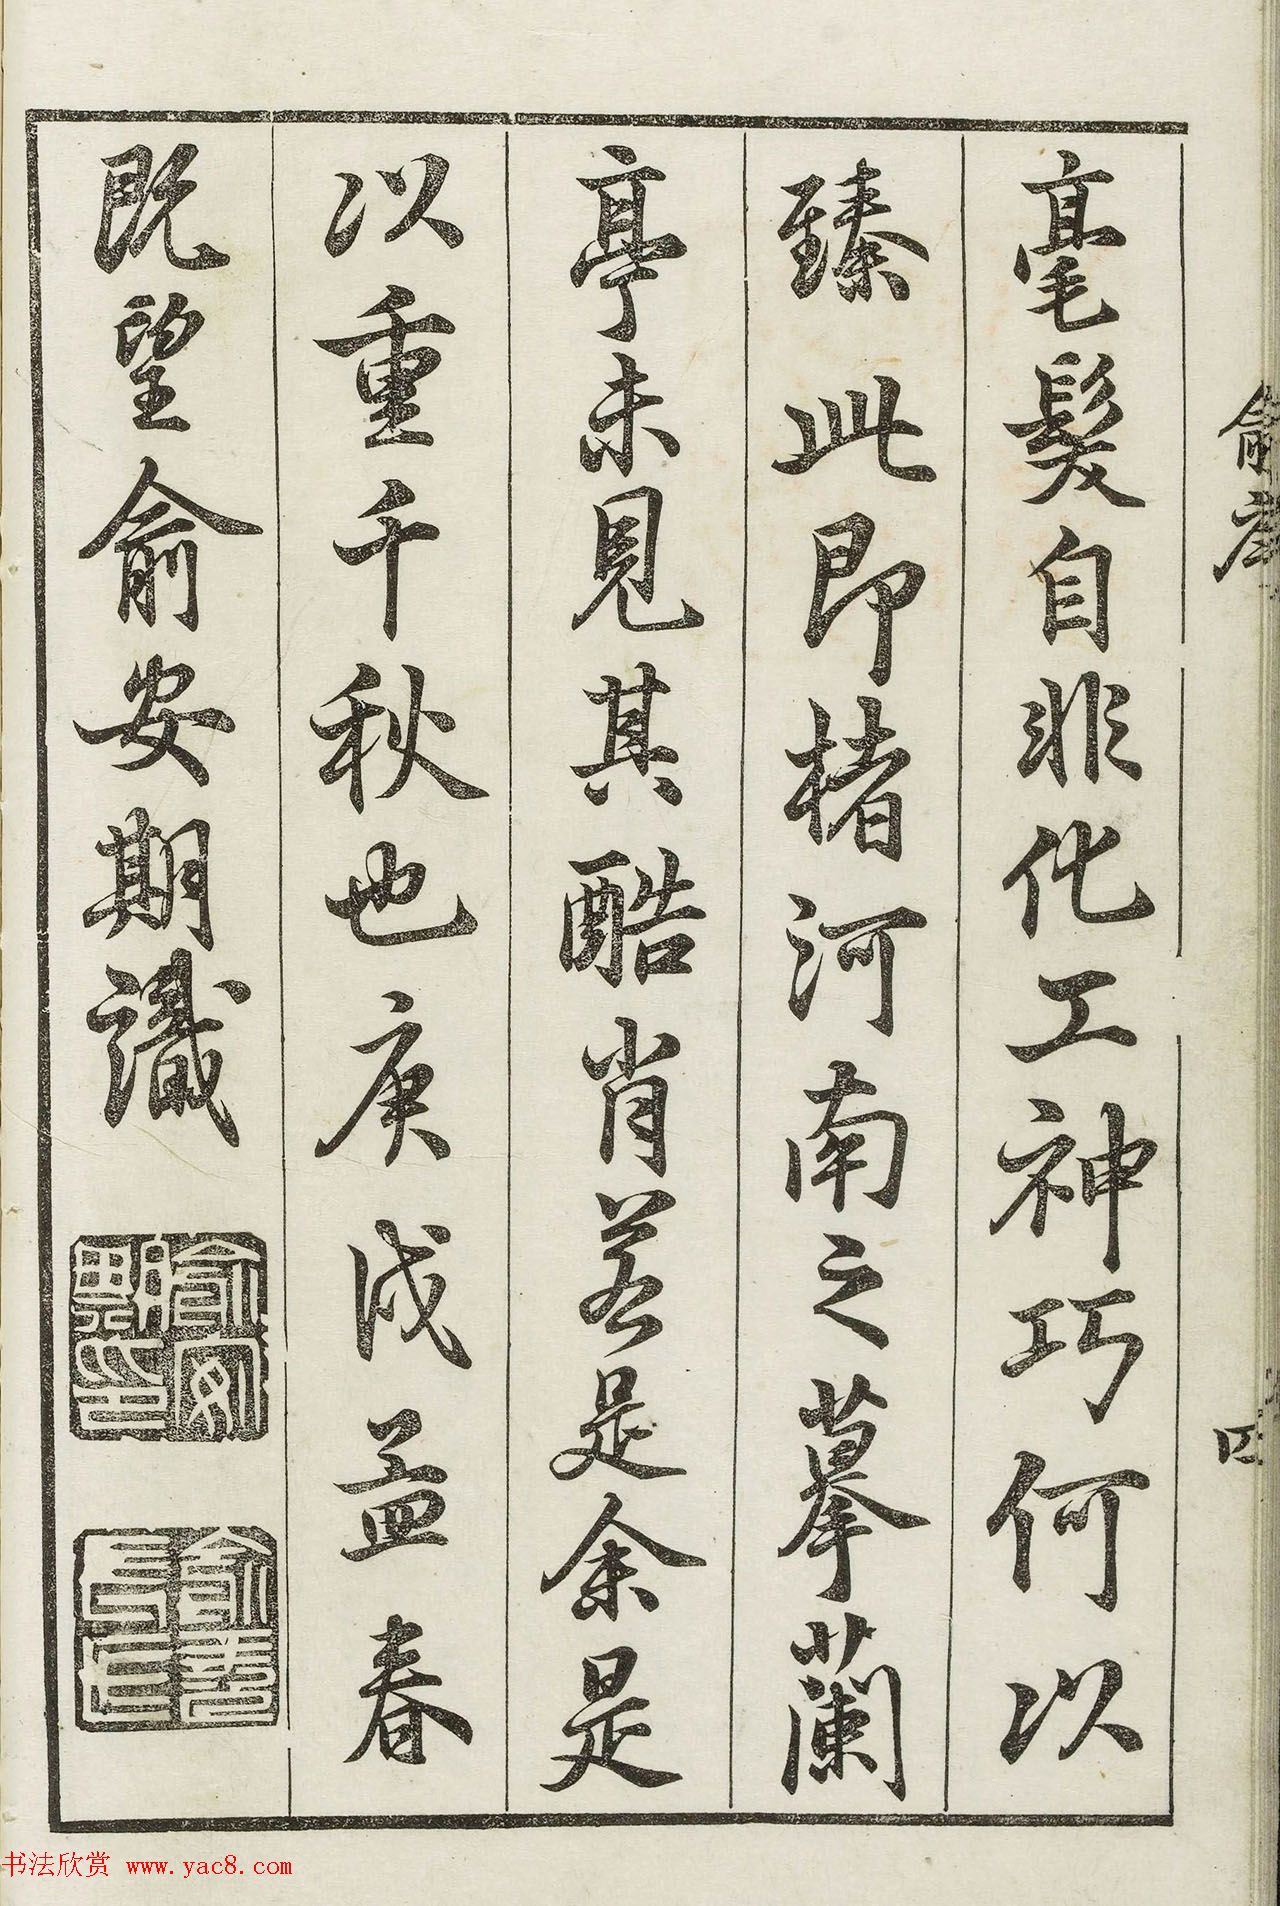 毫髮自非化工神巧何以
臻此即楮河南之摹蘭
亭未見其酷肖若是余是
以重千秋也庚戌孟春
既望俞安期識
俞序
四
书法欣赏 www.yac8.com